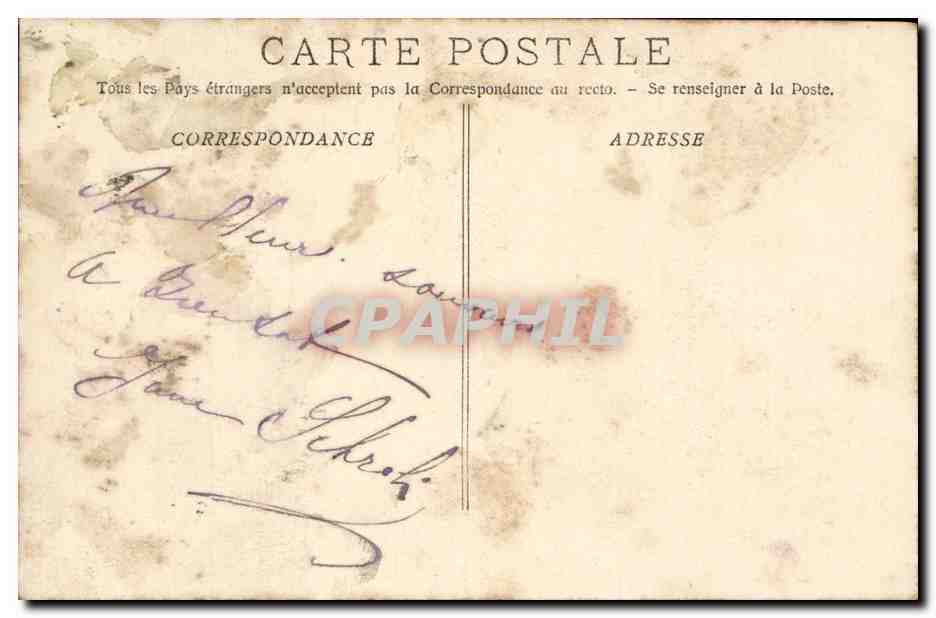 CARTE POSTALE
Tous les Pays étrangers n'acceptent pas la Correspondance au recto. – Se renseigner à la Poste.
CORRESPONDANCE
ADRESSE
Meilleur souvenir
A Bientot
CPAPHIL
Jane